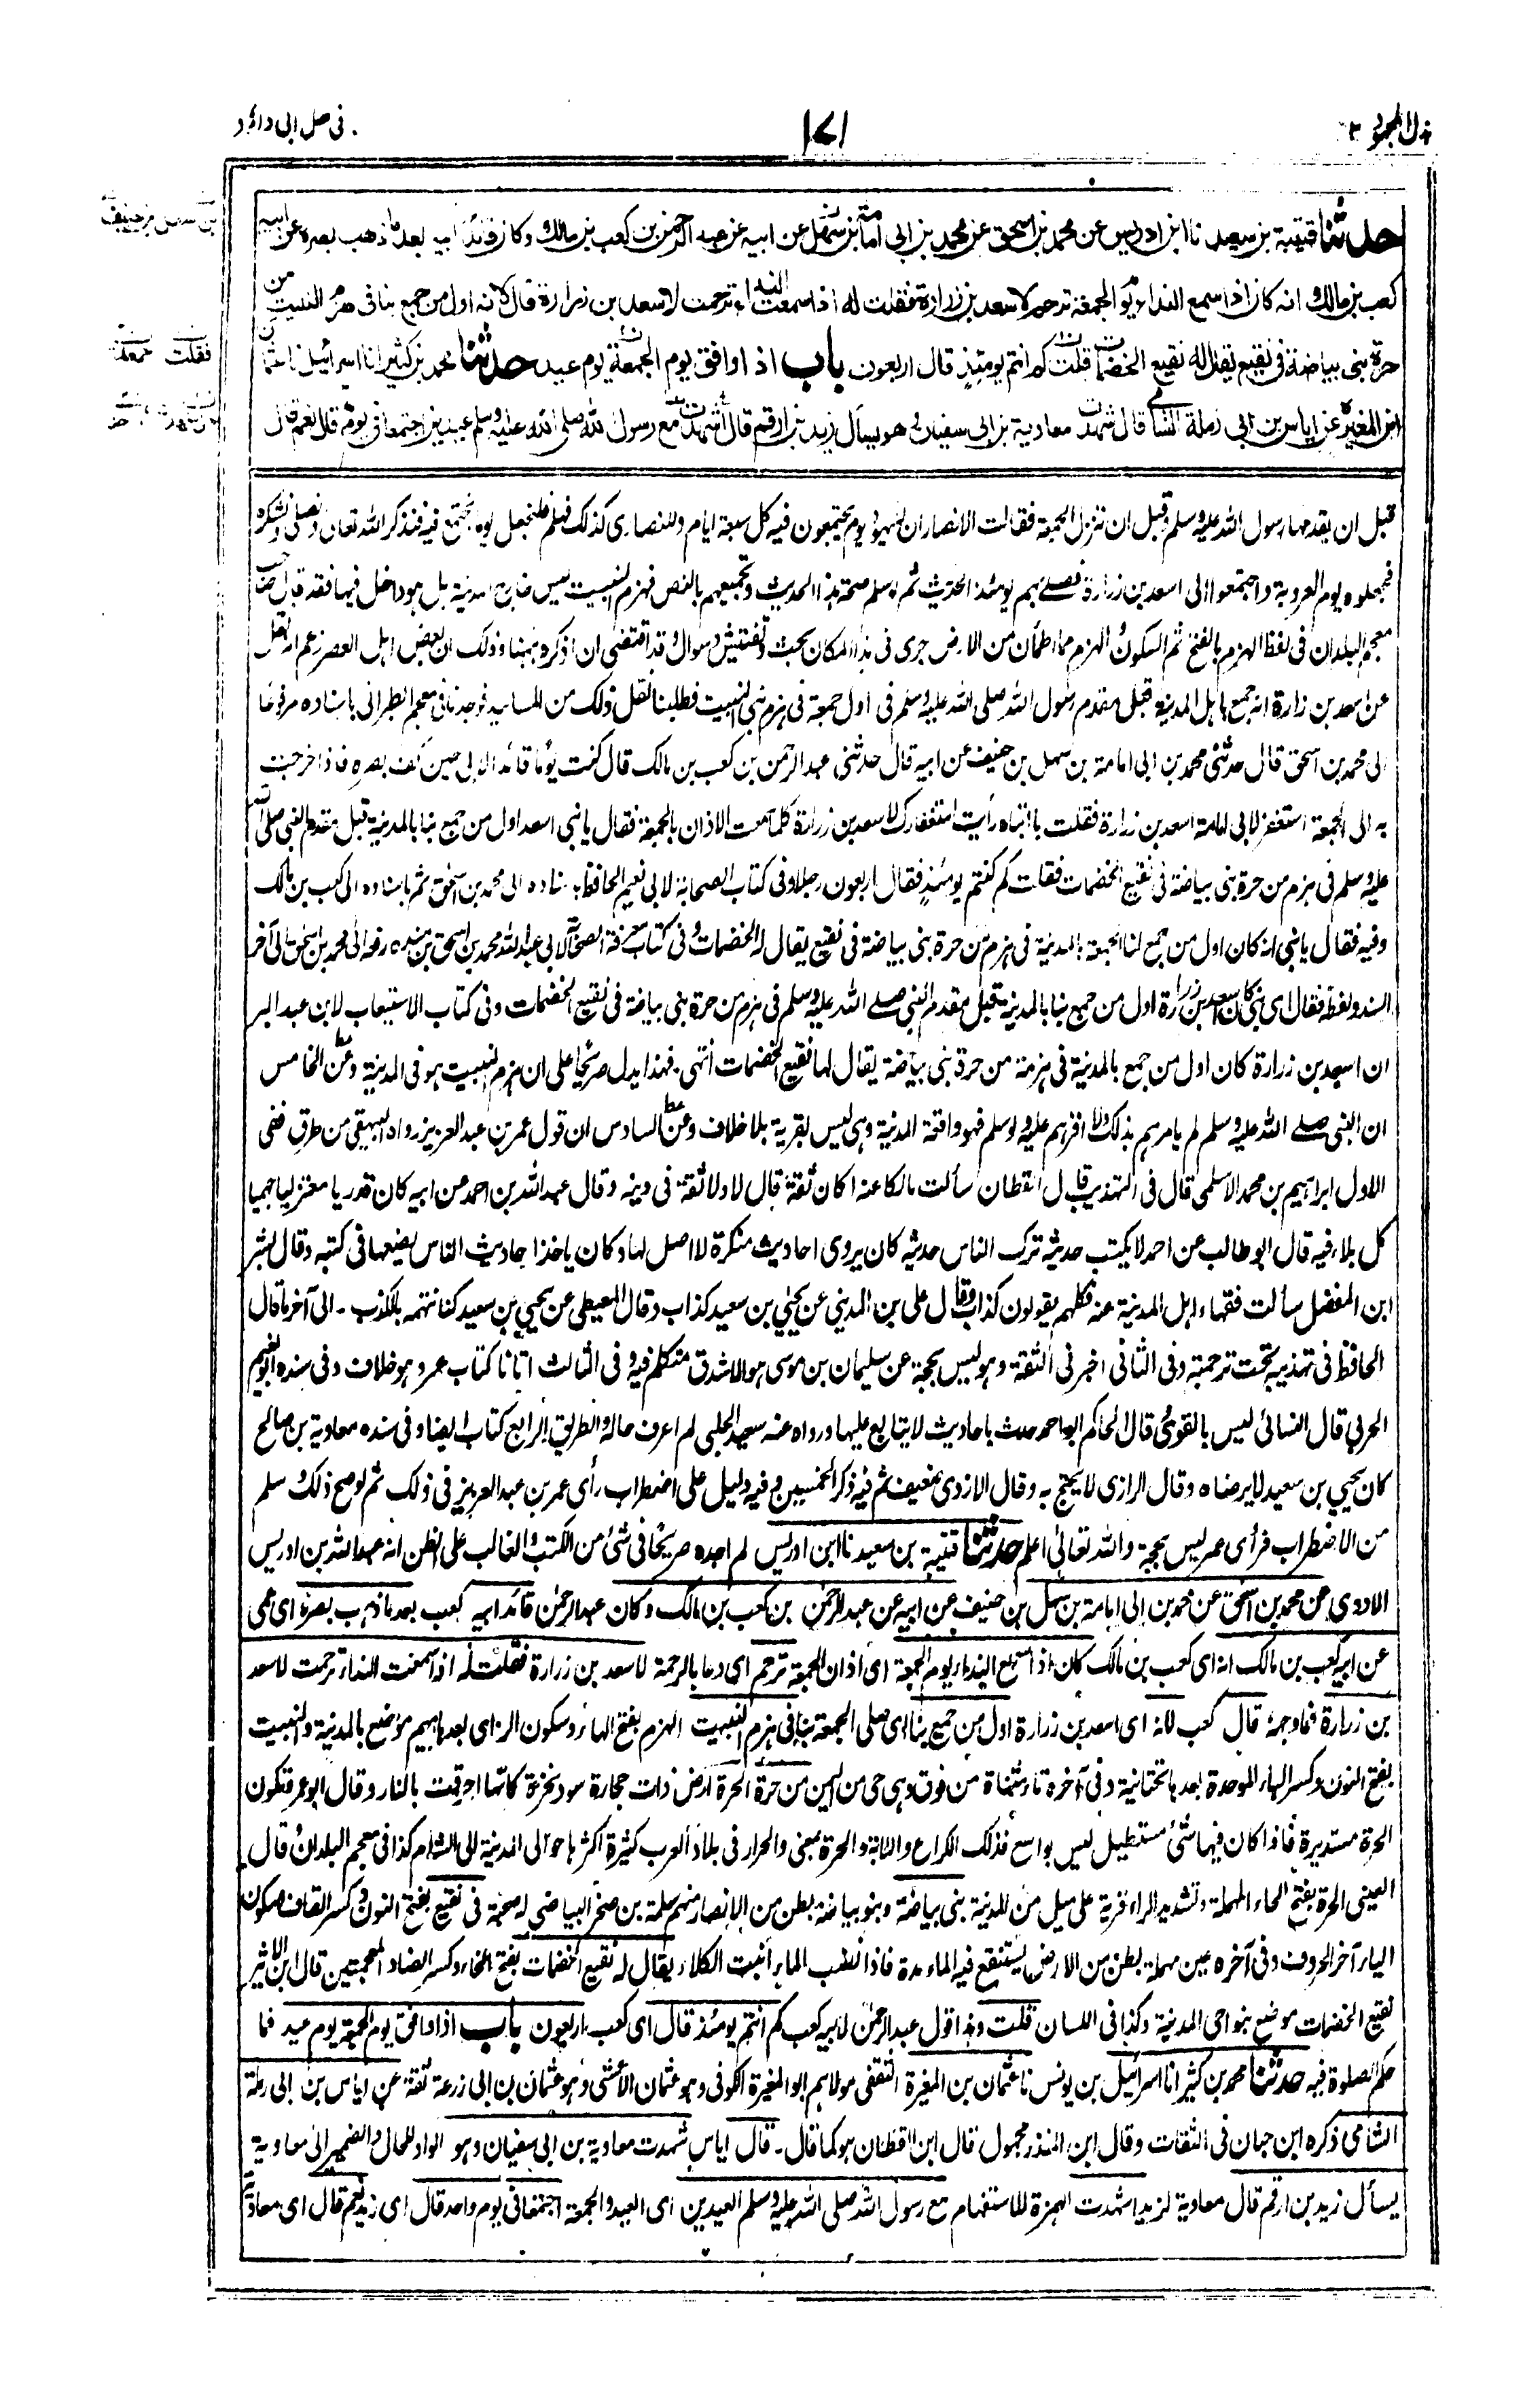 بذل المجهود ٢
١٧١
فى حل ابى داؤد
حدثنا قتيبة بن سعيد نا ابن ادريس عن محمد بن اسحق عن محمد بن ابى امامة بن سهل عن ابيه عن عبد الرحمن بن كعب بن مالك وكان قائد ابيه بعد ما ذهب بصره عن ابيه
كعب بن مالك انه كان اذا سمع النداء يوم الجمعة ترحم لاسعد بن زرارة فقلت له اذا سمعت النداء ترحمت لاسعد بن زرارة قال لانه اول من جمع بنا فى هزم النبيت من
حرة بنى بياضة فى نقيع يقال له نقيع الخضمات قلت كم انتم يومئذ قال اربعون باب اذا وافق يوم الجمعة يوم عيد حدثنا محمد بن كثير انا اسرائيل نا عثمان
ابن المغيرة عن اياس بن ابى رملة الشامى قال شهدت معاوية بن ابى سفيان وهو يسأل زيد بن ارقم قال اشهدت مع رسول الله صلى الله عليه وسلم عيدين اجتمعا فى يوم قال نعم قال
قبل ان يقدمها رسول الله عليه وسلم وقبل ان تنزل الجمعة فقالت الانصار ان لليهود يوم يجتمعون فيه كل سبعة ايام وللنصارى كذلك فهلم فلنجعل يوما نجتمع فيه فنذكر الله تعالى ونصلى ونشكره
فجعلوه يوم العروبة واجتمعوا الى اسعد بن زرارة فصلے بهم يومئذ الحديث ثم لو سلم صحة هذا الحديث وتجميعهم بالنص فهزم النبيت ليس خارج المدينة بل هو داخل فيها فقد قال صاحب
معجم البلدان فى لفظ الهزم بالفتح ثم السكون الهزم ما اطمأن من الارض جرى فى هذا المكان بحث وتفتيش وسوال وقد اقتضى ان اذكره ههنا وذلك ان بعض اهل العصر زعم انه نقل
عن اسعد بن زرارة انه جمع باهل المدينة قبل مقدم رسول الله صلى الله عليه وسلم فى اول جمعة فى هزم بنى النبيت فطلبنا نقل ذلك من المسانيد فوجدنا فى معجم الطبرانى باسناده مرفوعا
الى محمد بن اسحق قال حدثنى محمد بن ابى امامة بن سهل بن حنيف عن ابيه قال حدثنى عبد الرحمن بن كعب بن مالك قال كنت يوما قائدا لابى حين كف بصره فاذا خرجت
به الى الجمعة استغفر لابى امامة اسعد بن زرارة فقلت يا ابتاه رأيت استغفارك لاسعد بن زرارة كلما سمعت الاذان بالجمعة فقال يا بنى اسعد اول من جمع بنا بالمدينة قبل مقدم النبى صلى الله
عليه وسلم فى هزم من حرة بنى بياضة فى نقيع الخضمات فقلت كم كنتم يومئذ فقال اربعون رجلا وفى كتاب الصحابة لابى نعيم الحافظ باسناده الى محمد بن اسحق ثم باسناده الى كعب بن مالك
وفيه فقال يا بنى انه كان اول من جمع لنا الجمعة بالمدينة فى هزم من حرة بنى بياضة فى نقيع يقال له الخضمات وفى كتاب معرفة الصحابة لابى عبد الله محمد بن اسحق بن منده رفعه الى محمد بن اسحق الى آخر
السند ولفظه فقال اى بنى كان اسعد بن زرارة اول من جمع بنا بالمدينة قبل مقدم النبى صلے الله عليه وسلم فى هزم من حرة بنى بياضة فى نقيع الخضمات وفى كتاب الاستيعاب لابن عبد البر
ان اسعد بن زرارة كان اول من جمع بالمدينة فى هزمة من حرة بنى بياضة يقال لها نقيع الخضمات انتهى۔ فهذا يدل صريحا على ان هزم النبيت هو فى المدينة وعن الخامس
ان النبى صلے الله عليه وسلم لم يامرهم بذلك ولا اقرهم عليه ولو سلم فهو واقعة المدينة وهى ليس بقرية بلا خلاف وعن السادس ان قول عمر بن عبد العزيز رواه البيهقى من طرق ففى
الاول ابراهيم بن محمد الاسلمى قال فى التهذيب قال القطان سألت مالكا عنه اكان ثقة قال لا ولا ثقة فى دينه وقال عبد الله بن احمد عن ابيه كان قدريا معتزليا جهميا
كل بلاء فيه قال ابو طالب عن احمد لا يكتب حديثه ترك الناس حديثه كان يروى احاديث منكرة لا اصل لها وكان ياخذ احاديث الناس يضعها فى كتبه وقال بشر
ابن المفضل سألت فقهاء اهل المدينة عنه فكلهم يقولون كذاب وقال على بن المدينى عن يحيى بن سعيد كذاب وقال المعيطى عن يحيى بن سعيد كنا نتهمه بالكذب۔ الى آخر ما قال
الحافظ فى تهذيبه تحت ترجمته وفى الثانى اخبرنى الثقة وهو ليس بحجة عن سليمان بن موسى هو الاشدق متكلم فيه وفى الثالث اتانا كتاب عمر وهو خلاف وفى سنده ابو نعيم
الحربى قال النسائى ليس بالقوى قال الحاكم ابو احمد حدث باحاديث لا يتابع عليها ورواه عنه سعيد الحلبى لم اعرف حاله والطريق الرابع كتاب ايضا وفى سنده معاوية بن صالح
كان يحيى بن سعيد لا يرضاه وقال الرازى لا يحتج به وقال الازدى ضعيف ثم فيه ذكر الخمسين وفيه دليل على اضطراب رأى عمر بن عبد العزيز فى ذلك ثم لو صح ذلك وسلم
من الاضطراب فرأى عمر ليس بحجة والله تعالى اعلم حدثنا قتيبة بن سعيد نا ابن ادريس لم اجده صريحا فى شئ من الكتب والغالب على الظن انه عبد الله بن ادريس
الاودى عن محمد بن اسحق عن محمد بن ابى امامة بن سهل بن حنيف عن ابيه عن عبد الرحمن بن كعب بن مالك وكان عبد الرحمن قائد ابيه كعب بعد ما ذهب بصره اى عمى
عن ابيه كعب بن مالك انه اى كعب بن مالك كان اذا سمع النداء يوم الجمعة اى اذان الجمعة ترحم اى دعا بالرحمة لاسعد بن زرارة فقلت له اذا سمعت النداء ترحمت لاسعد
بن زرارة فما وجهه قال كعب لانه اى اسعد بن زرارة اول من جمع بنا اى صلى الجمعة بنا فى هزم النبيت الهزم بفتح الهاء وسكون الزاى بعدها ميم موضع بالمدينة والنبيت
بفتح النون وكسر الباء الموحدة بعدها تحتانية وفى آخره تاء مثناة من فوق وهى حى من اليمن من حرة الحرة ارض ذات حجارة سود نخرة كانها احرقت بالنار وقال ابو عمرو تكون
الحرة مستديرة فاذا كان فيها شئ مستطيل ليس بواسع فذلك الكراع واللابة والحرة بمعنى والحرار فى بلاد العرب كثيرة اكثرها حوالى المدينة الى الشام كذا فى معجم البلدان وقال
العينى الحرة بفتح الحاء المهملة وتشديد الراء قرية على ميل من المدينة بنى بياضة وبنو بياضة بطن من الانصار منهم سلمة بن صخر البياضى له صحبة فى نقيع بفتح النون وكسر القاف وسكون
الياء آخر الحروف وفى آخره عين مهملة بطن من الارض يستنقع فيه الماء مدة فاذا نضب الماء انبت الكلاء يقال له نقيع الخضمات بفتح الخاء وكسر الضاد المعجمتين قال ابن الاثير
نقيع الخضمات موضع بنواحى المدينة وكذا فى اللسان قلت وهذا قول عبد الرحمن لابيه كعب كم انتم يومئذ قال اى كعب اربعون باب اذا وافق يوم الجمعة يوم عيد فما
حكم الصلوة فيه حدثنا محمد بن كثير انا اسرائيل بن يونس نا عثمان بن المغيرة الثقفى مولاهم ابو المغيرة الكوفى وهو عثمان الاعشى وهو عثمان بن ابى زرعة ثقة عن اياس بن ابى رملة
الشامى ذكره ابن حبان فى الثقات وقال ابن المنذر مجهول قال ابن القطان هو كما قال۔ قال اياس شهدت معاوية بن ابى سفيان وهو الواو للحال والضمير الى معاوية
يسأل زيد بن ارقم قال معاوية لزيد اشهدت الهمزة للاستفهام مع رسول الله صلى الله عليه وسلم العيدين اى العيد والجمعة اجتمعا فى يوم واحد قال اى زيد نعم قال اى معاوية